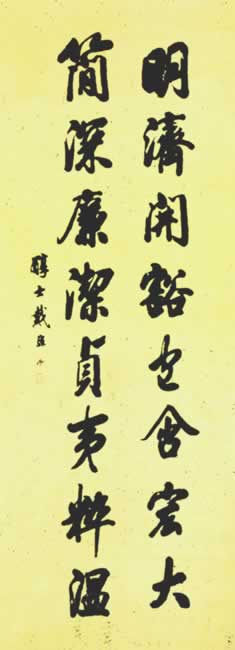 明濟開豁包含宏大
簡深廉潔貞夷粹温
醇士戴熙